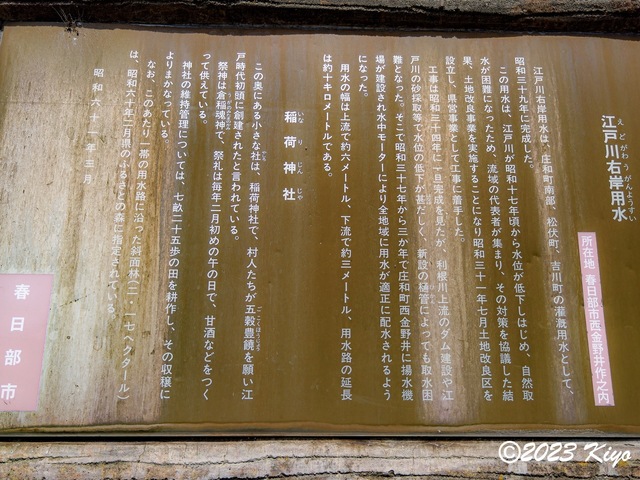 江戸川右岸用水
えどがわうがんようすい
所在地 春日部市西金野井作之内
江戸川右岸用水は、庄和町南部、松伏町、吉川町の灌漑用水として、
昭和三十九年に完成した。
この用水は、江戸川が昭和十七年頃から水位が低下しはじめ、自然取
水が困難になったため、流域の代表者が集まり、その対策を協議した結
果、土地改良事業を実施することになり昭和三十一年七月土地改良区を
設立し、県営事業として工事に着手した。
工事は昭和三十四年に一旦完成を見たが、利根川上流のダム建設や江
戸川の砂採取等で水位の低下が甚だしく、新設の樋管によっても取水困
難となった。そこで昭和三十七年から三か年で庄和町西金野井に揚水機
場が建設され水中モーターにより全地域に用水が適正に配水されるよう
になった。
用水の幅は上流で約六メートル、下流で約三メートル、用水路の延長
は約十キロメートルである。
稲荷神社
いなりじんじゃ
この奥にある小さな社は、稲荷神社で、村人たちが五穀豊饒を願い江
ごこくほうじょう
戸時代初頭に創建されたと言われている。
祭神は倉稲魂神で、祭礼は毎年二月初めの午の日で、甘酒などをつく
って供えている。
神社の維持管理については、七畝二十五歩の田を耕作し、その収穫に
よりまかなっている。
なお、このあたり一帯の用水路に沿った斜面林(二・一七ヘクタール)
は、昭和六十年二月県のふるさとの森に指定されている。
昭和六十一年三月
春日部市
©2023 Kiyo